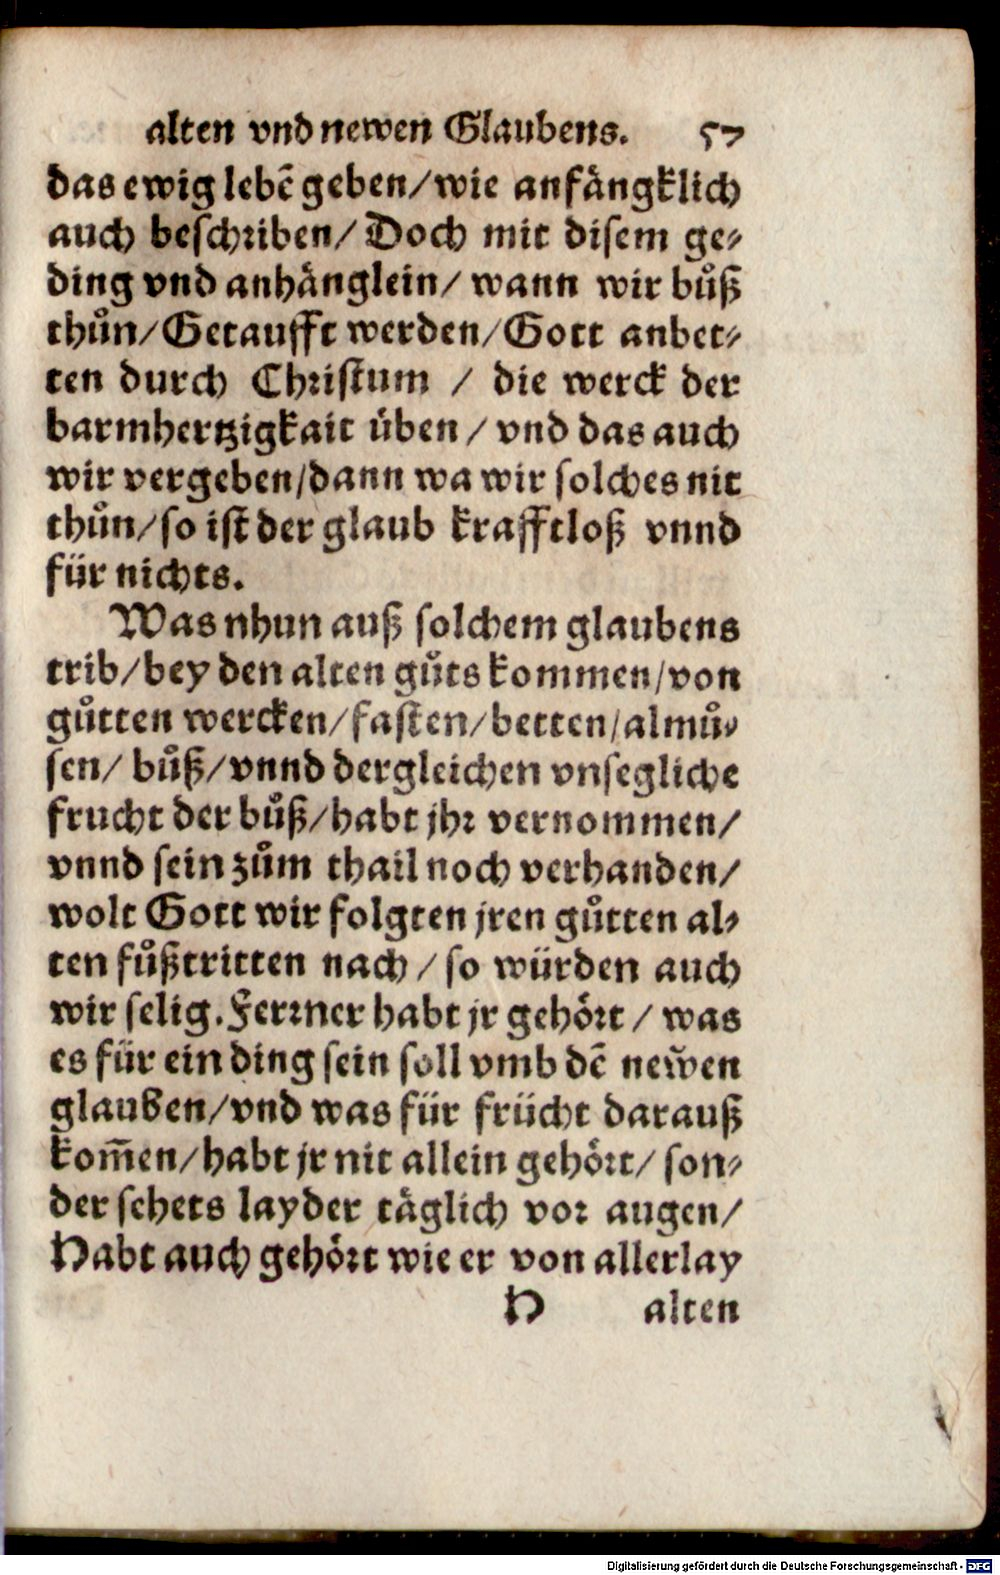 alten vnd newen Glaubens. 57
das ewig lebẽ geben/wie anfängklich
auch beschriben/ Doch mit disem ge-
ding vnd anhänglein/ wann wir bůß
thůn/Getaufft werden/Gott anbet-
ten durch Christum / die werck der
barmhertzigkait üben / vnd das auch
wir vergeben/dann wa wir solches nit
thůn/so ist der glaub krafftloß vnnd
für nichts.
Was nhun auß solchem glaubens
trib/bey den alten gůts kommen/von
gůtten wercken/fasten/betten/almů-
sen/ bůß/vnnd dergleichen vnsegliche
frucht der bůß/habt jhr vernommen/
vnnd sein zům thail noch verhanden/
wolt Gott wir folgten jren gůtten al-
ten fůßtritten nach / so würden auch
wir selig. Ferrner habt jr gehört / was
es für ein ding sein soll vmb dẽ new̃en
glauben/vnd was für frücht darauß
kom̃en/habt jr nit allein gehört/ son-
der sehets layder täglich vor augen/
Habt auch gehört wie er von allerlay
H alten
Digitalisierung gefördert durch die Deutsche Forschungsgemeinschaft - DFG